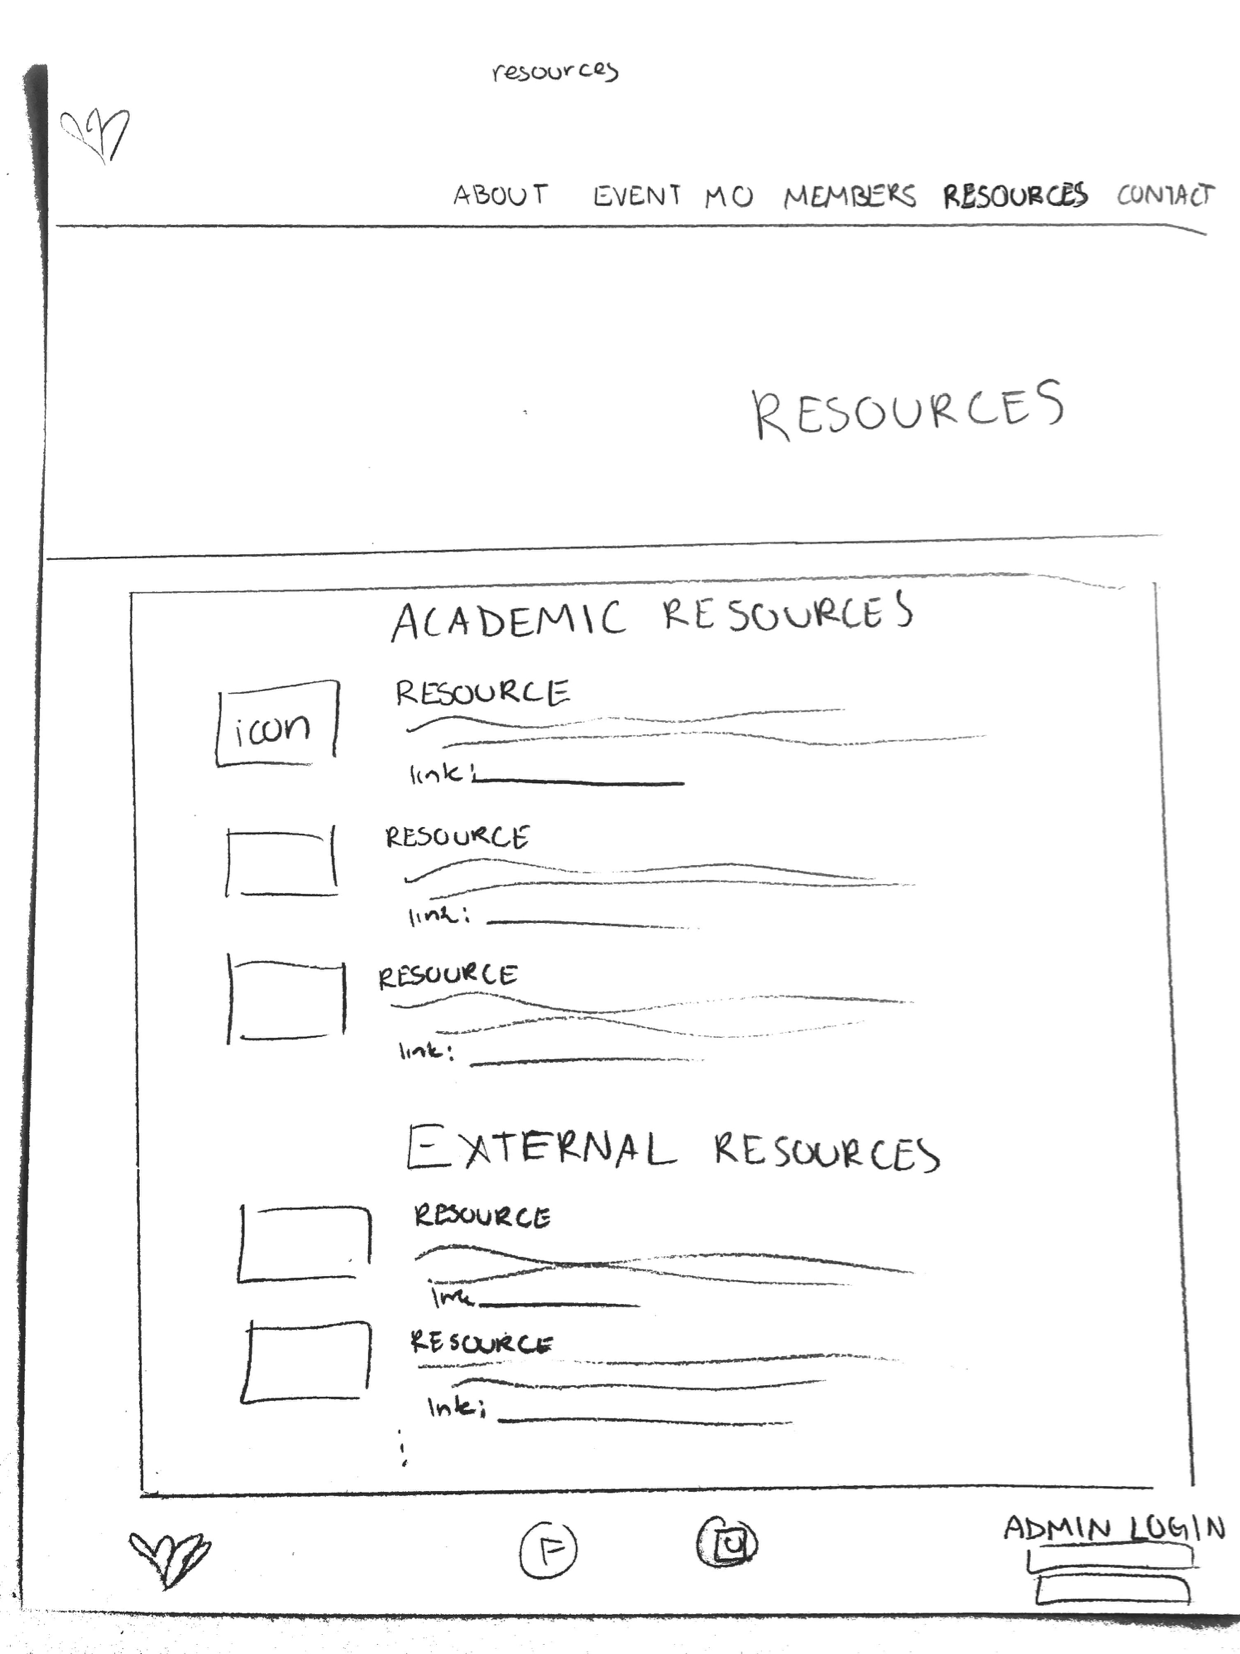 resources
ABOUT EVENT MO MEMBERS RESOURCES CONTACT
RESOURCES
ACADEMIC RESOURCES
icon
RESOURCE
link:
RESOURCE
link:
RESOURCE
link:
EXTERNAL RESOURCES
RESOURCE
link
RESOURCE
link:
F
ADMIN LOGIN